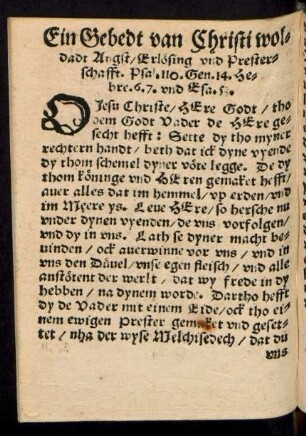 Ein Gebedt van Christi wol-
dadt Angst / Erlösing vnd Prester-
schafft. Psal. 110. Gen. 14. He-
bre. 6. 7. vnd Esa. 53.
O Jesu Christe / HEre Godt / tho
dem Godt Vader de HEre ge-
secht hefft: Sette dy tho myner
rechtern handt / beth dat ick dyne vyende
dy thom schemel dyner vöte legge. De dy
thom köninge vnd HEren gemaket hefft /
auer alles dat im hemmel / vp erden / vnd
im Meere ys. Leue HEre / so hersche nu
vnder dynen vyenden / de vns vorfolgen /
vnd dy in vns. Lath se dyner macht be-
uinden / ock auerwinne vor vns / vnd in
vns den Düuel / vnse egen fleisch / vnd alle
anstötent der werlt / dat wy frede in dy
hebben / na dynem worde. Dartho hefft
dy de Vader mit einem Eide / ock tho ei-
nem ewigen Prester gemaket vnd geset-
tet / nha der wyse Melchisedech / dat du
vns